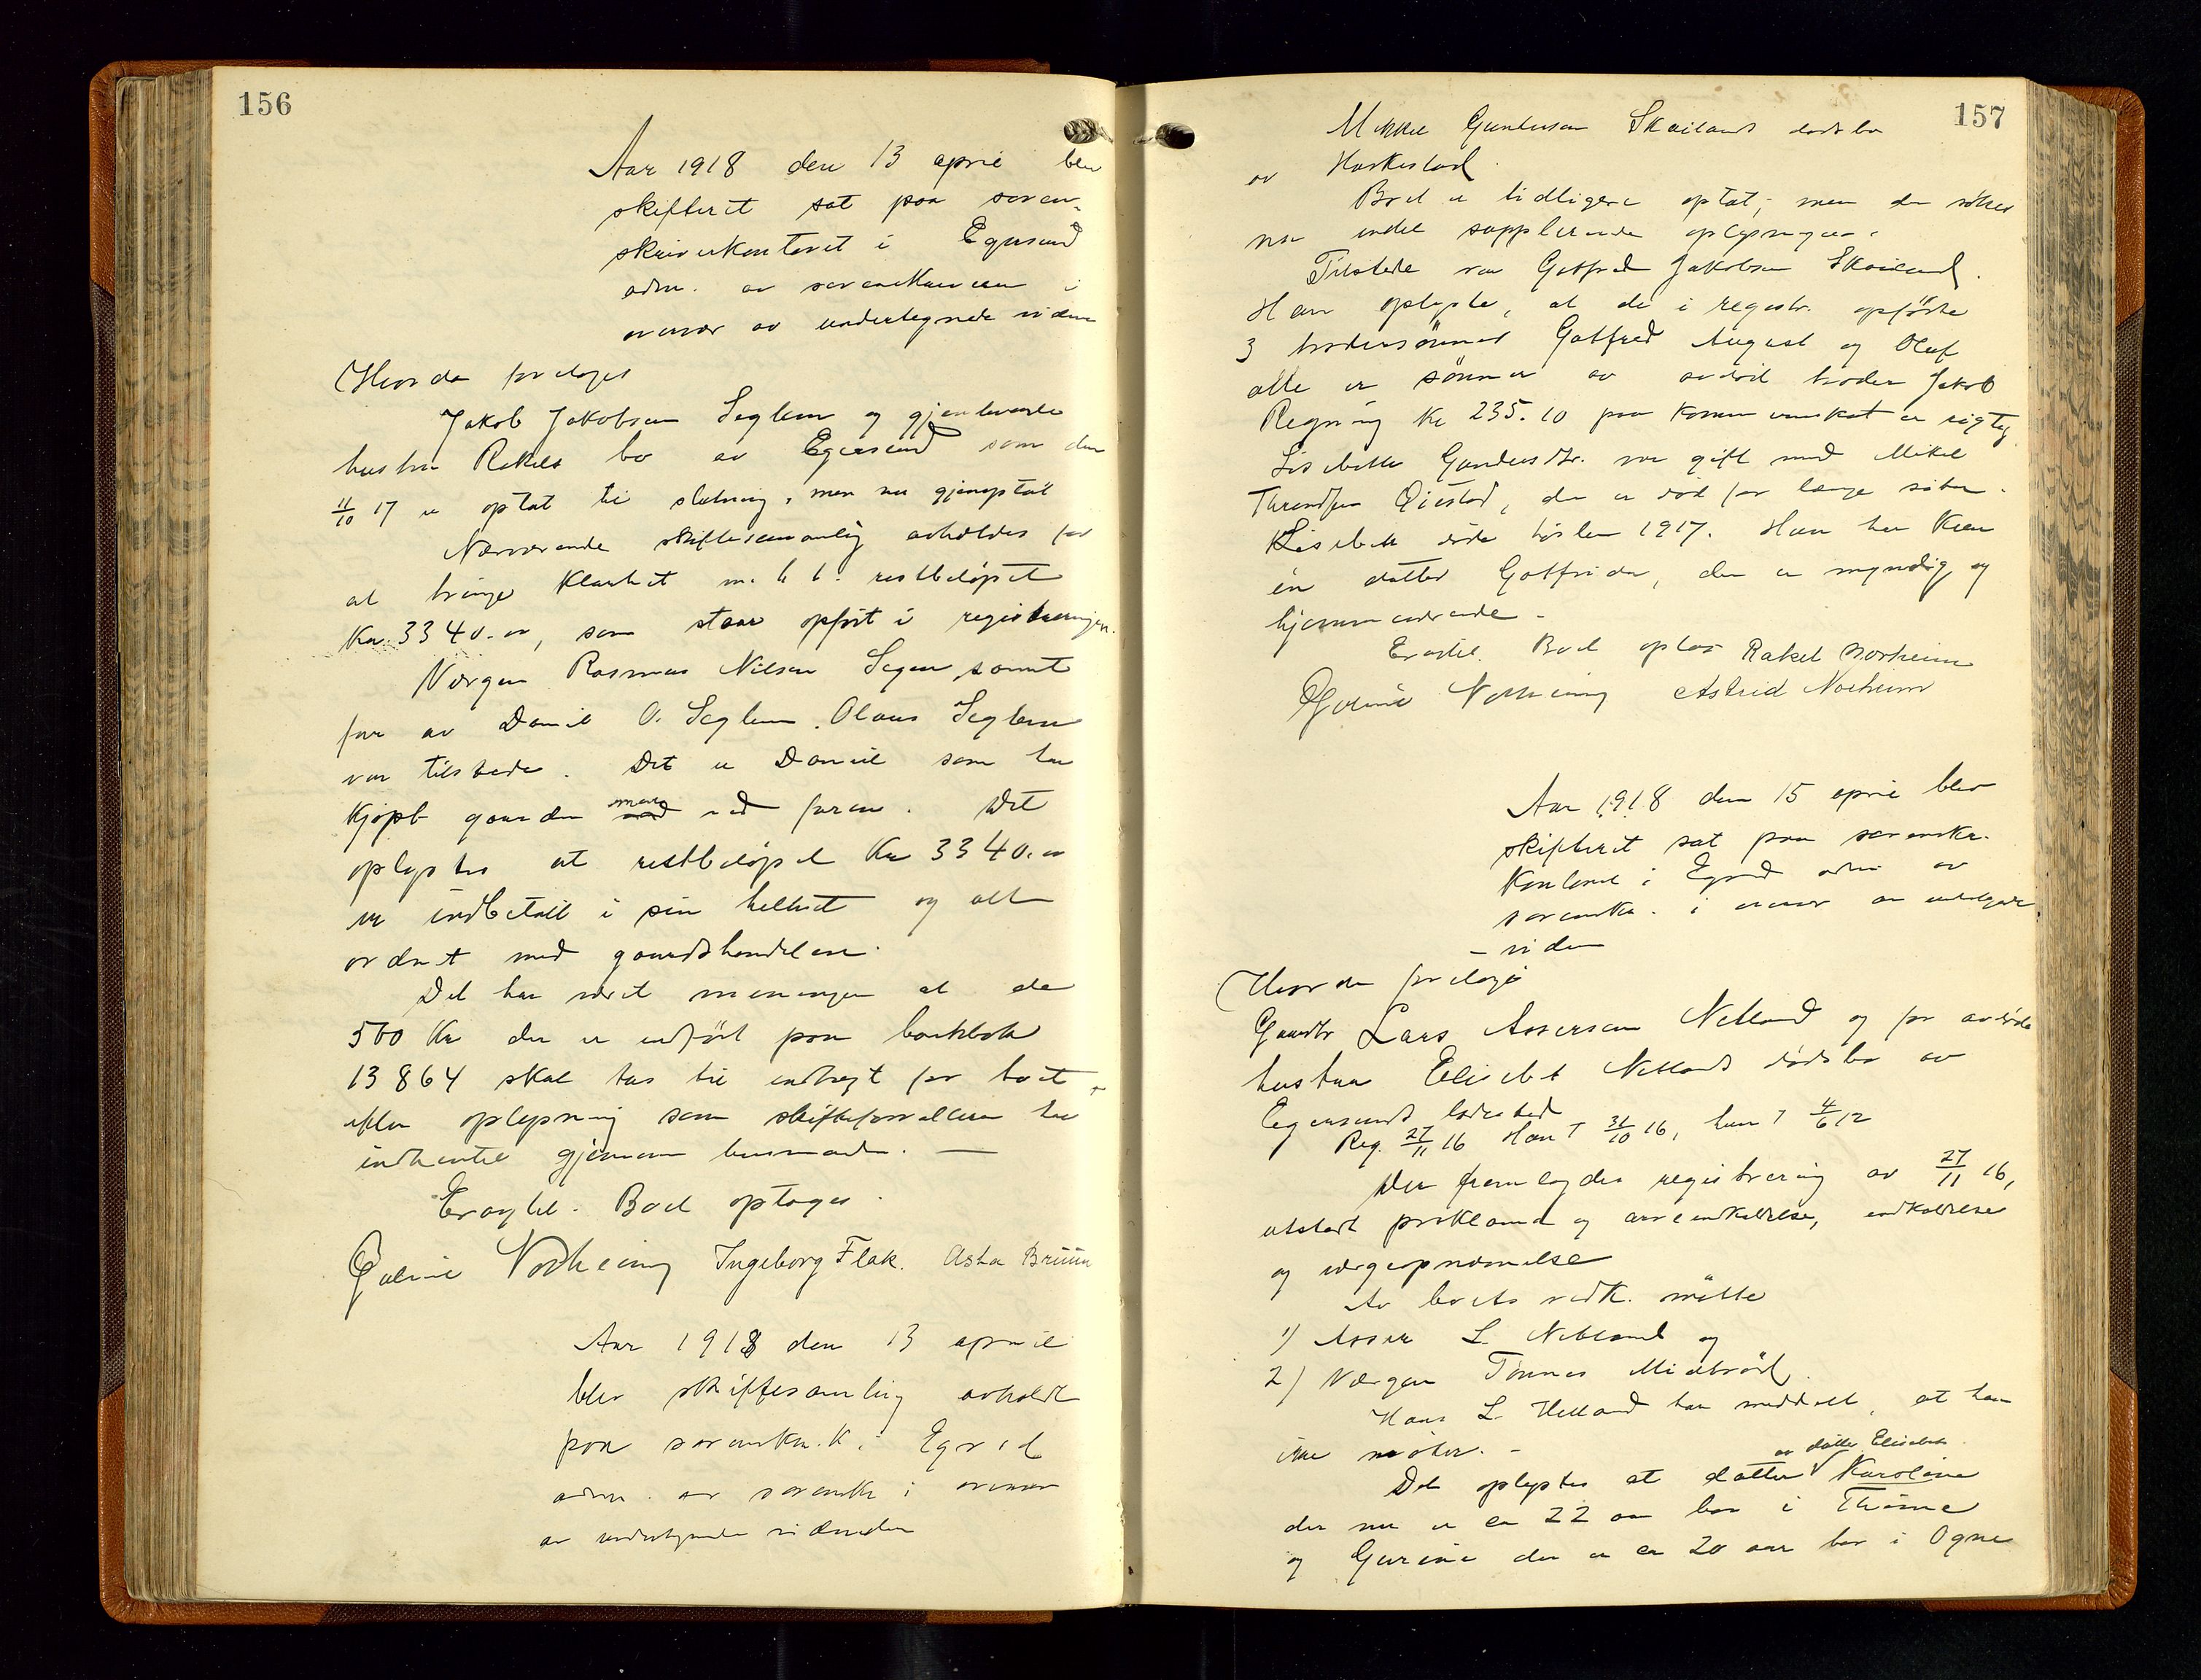 156
Aar 1918 den 13 april blev
skifteret sat paa soren-
skriverkontoret i Egersund
adm. av sorenskriveren i
overvær av undertegnede vidner
Hvorda foretoges
Jakob Jakobsen Seglem og gjenlevende
hustru Rakels bo av Egersund som den
11/10 17 er optat til slutning, men nu gjenoptat
Nærværende skiftesamling avholdes for
at bringe klarhet m. h. t. restbeløpet
Kr. 3340.00, som staar opført i registreringen.
Værgen Rasmus Nilsen Segem samt
far av Daniel O. Seglem Olaus Seglem
var tilstede. Det er Daniel som har
kjøpt gaarden ved faren. Det
oplystes at restbeløpet Kr 3340.00
er indbetalt i sin helhet og alt
ordnet med gaardshandelen.
Det har været meningen at de
500 Kr der er indført paa bankbok
13864 skal tas til indtægt for boet
efter oplysning som skifteforvalteren har
indhentet gjennem lensmanden. —
Eragtet. Boet optages.
Ingeborg Flak. Asta Bruun
Aar 1918 den 13 april
blev skiftesamling avholdt
paa sorenskr.k. i Egersd
adm. av sorenskr i overvær
av undertegnede vidner
157
Mikkel Gundersen Skailands dødsbo
av Haskestad.
Boet er tidligere optat; men der søkes
nu endel supplerende oplysninger.
Tilstede var Gotfred Jakobsen Skailand.
Han oplyste, at de i registr. opførte
3 brodersønner Gotfred August og Olaf
alle er sønner av avdød broder Jakob
Regning Kr 235.10 paa kommuneskat er rigtig
Lisebette Gundersdtr. var gift med Mikel
Throndsen Eiestad, der er død for længe siden.
Lisebett døde høsten 1917. Hun har kun
én datter Gotfrida, der er myndig og
hjemmeværende -
Eragtet. Boet optas Rakel Norheim
Astrid Norheim
Aar 1918 den 15 april blev
skifteret sat paa sorenskr.
Kontoret i Egersd adm av
sorenskr. i overvær av undertegnede
- vidner
Hvorda foretoges
Gaardbr Lars Assersen Netland og før avdøde
hustru Elisebet Netlands dødsbo av
Egersunds ladested
Reg. 27/11 16 Han † 31/10 16, hun † 4/6 12
Der fremlagdes registrering av 27/11 16,
utstedt proklama og arveindkaldelse, indkaldelse
og værgeopnævnelse
Av boets vedk. møtte
1) Asser L. Netland og
2) Værgen Tønnes Midbrød.
Hans L. Netland har meddelt, at han
ikke møter. -
av datter Elisebet
Det oplystes at datter Karoline
der nu er ca 22 aar bor i Thime
og Gurine der er ca 20 aar bor i Ogne